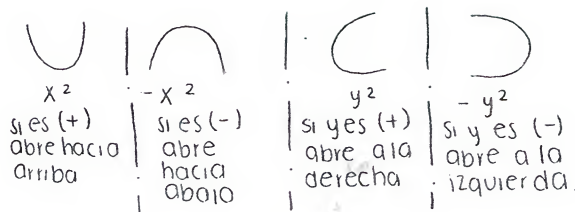 x²
si es (+)
abre hacia
arriba
- x²
si es (-)
abre
hacia
abajo
y²
si y es (+)
abre a la
derecha
- y²
si y es (-)
abre a la
izquierda.